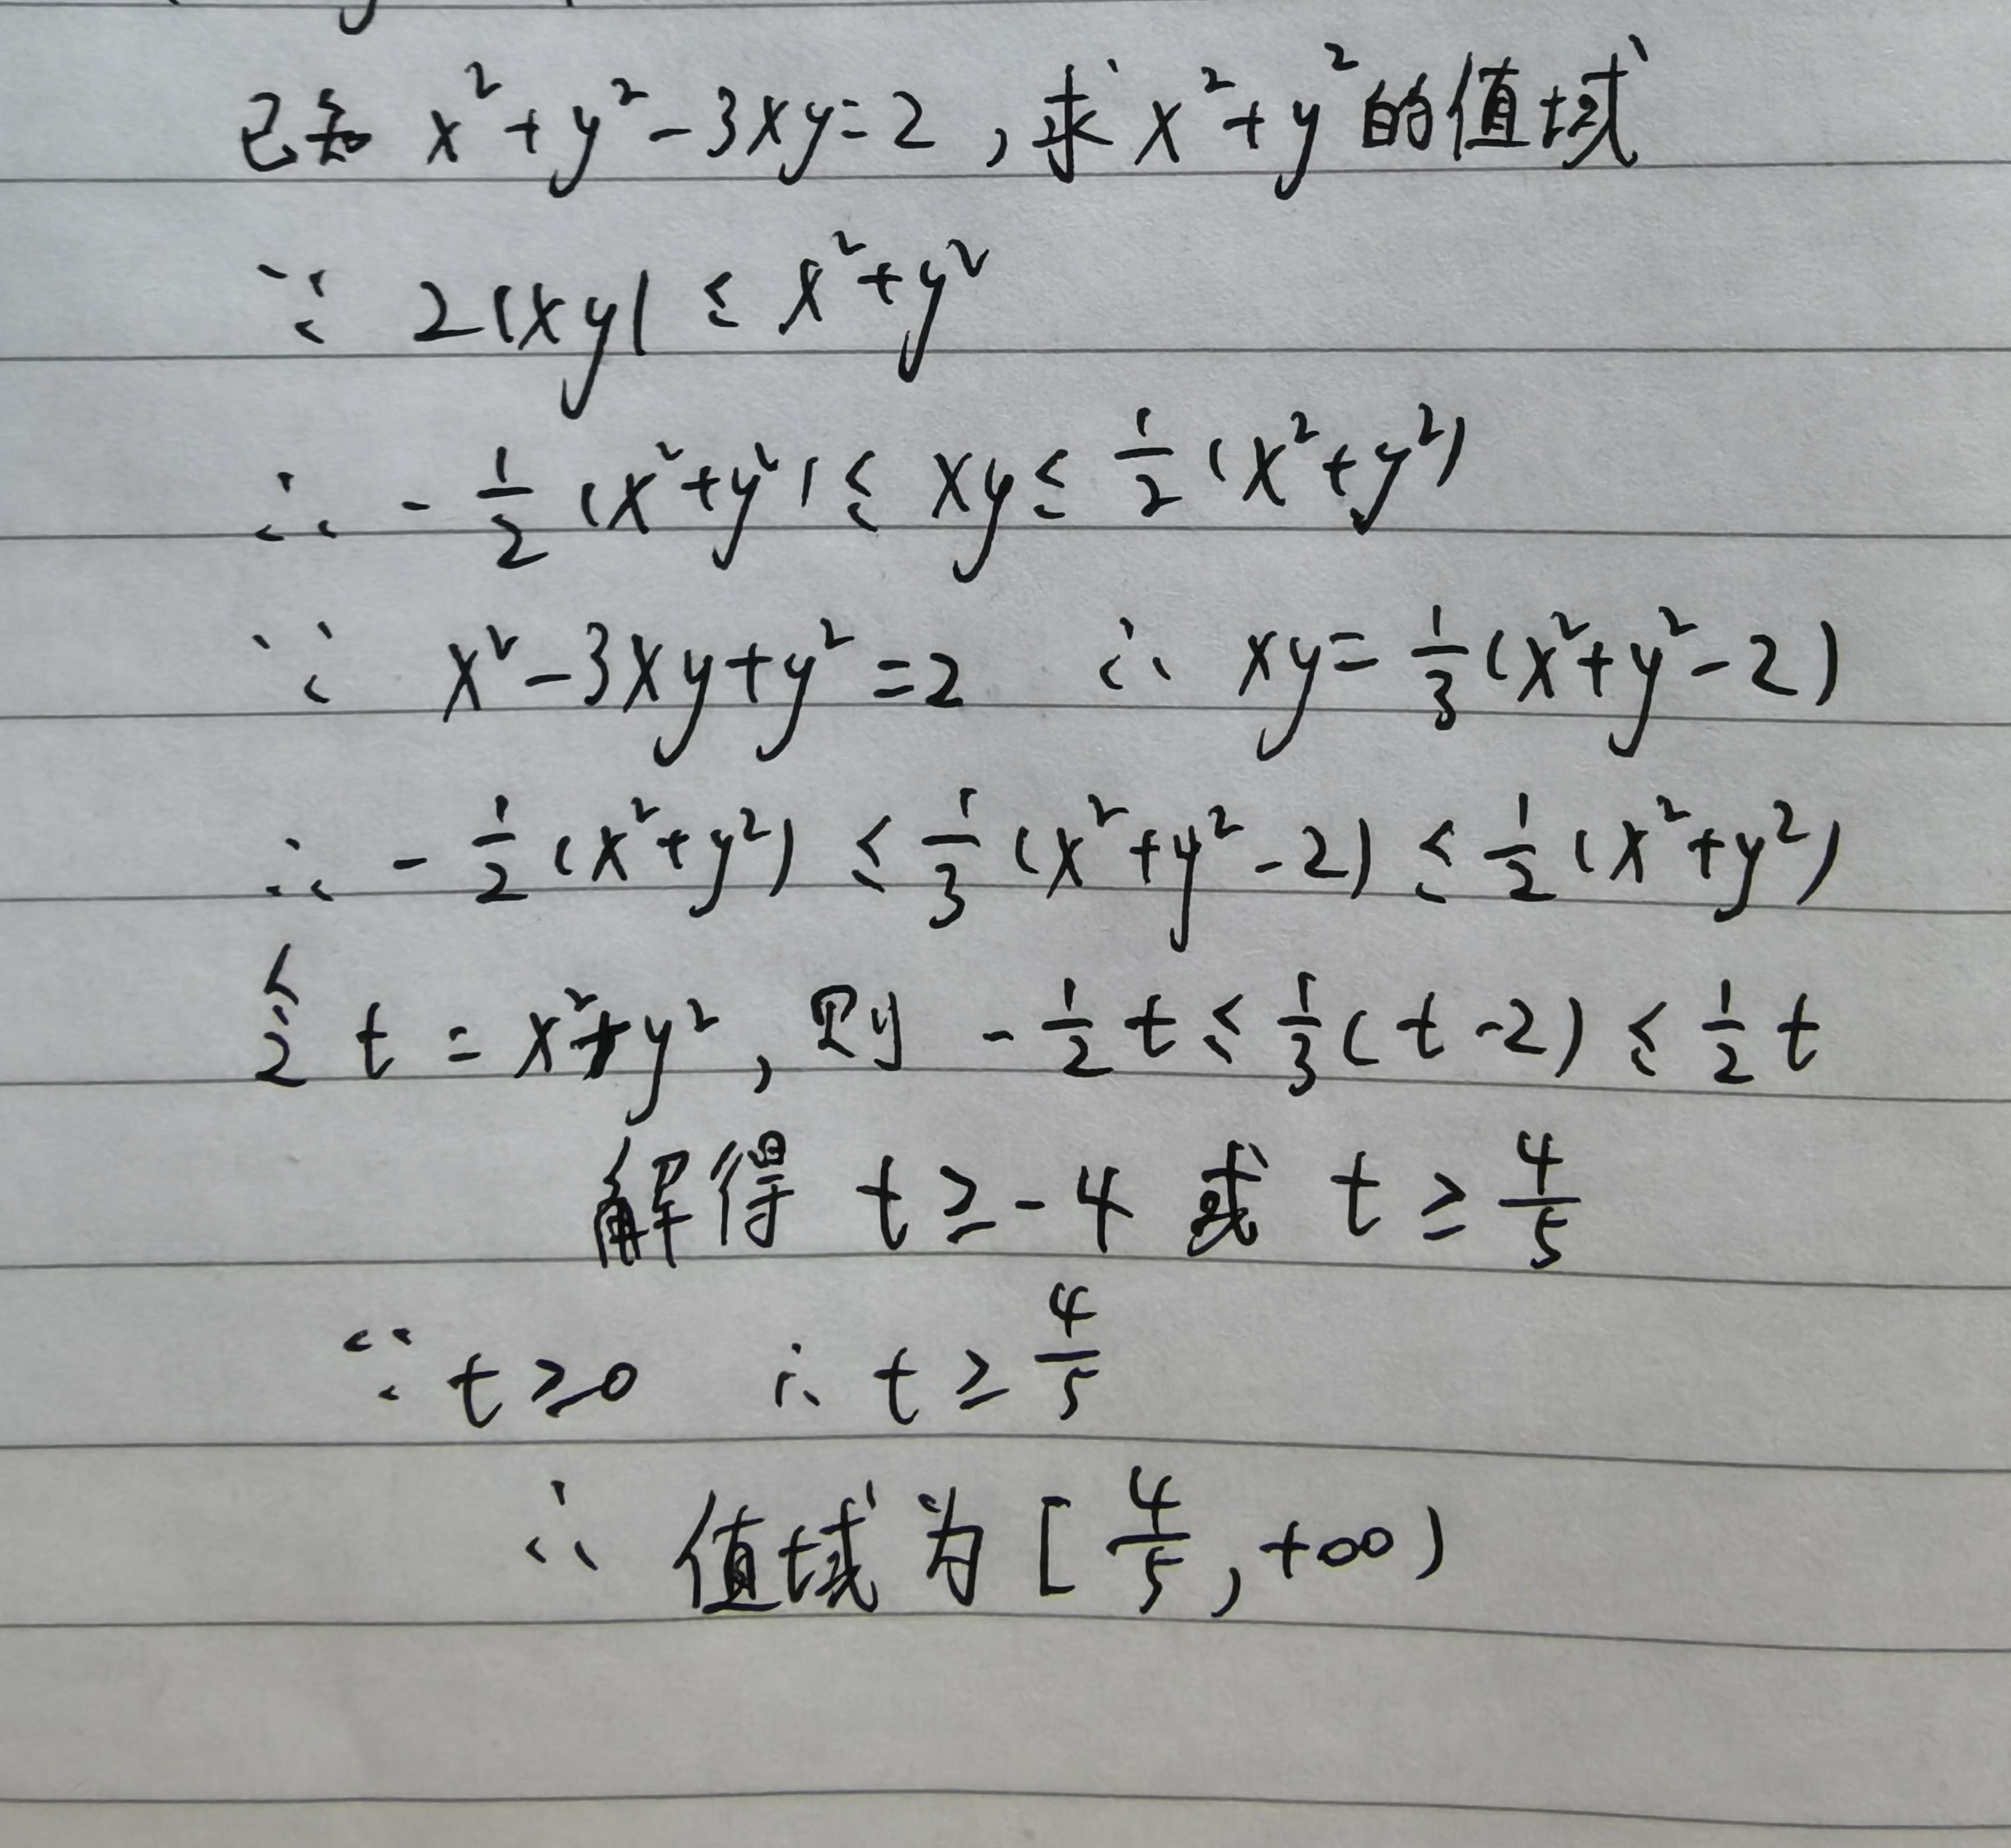 已知 x²+y²-3xy=2，求 x²+y²的值域
∵ 2|xy| ≤ x²+y²
∴ -1/2 (x²+y²) ≤ xy ≤ 1/2 (x²+y²)
∵ x²-3xy+y²=2 ∴ xy=1/3(x²+y²-2)
∴ -1/2 (x²+y²) ≤ 1/3 (x²+y²-2) ≤ 1/2 (x²+y²)
令 t = x²+y²，则 -1/2 t ≤ 1/3 (t-2) ≤ 1/2 t
解得 t ≥ -4 或 t ≥ 4/5
∵ t ≥ 0 ∴ t ≥ 4/5
∴ 值域为 [4/5, +∞)